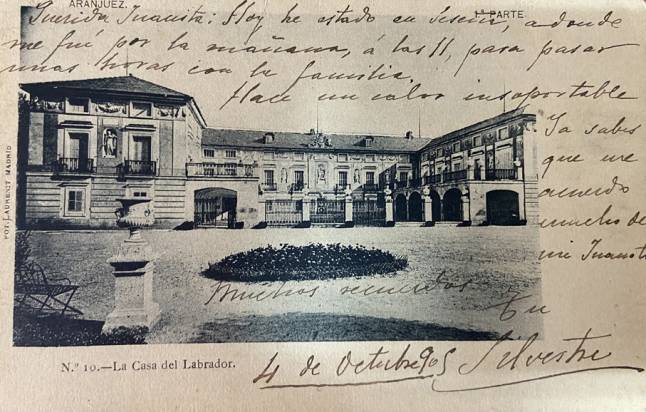 ARANJUEZ.
1ª PARTE
Querida Juanita: Hoy he estado en a donde
me fuí por la mañana, á las 11, para pasar
unas horas con la familia.
Hace un calor insoportable
Ya sabes
que me
acuerdo
mucho de
mi Juanita
Muchos recuerdos
Tu
Silvestre
4 de Octubre 905
FOT. LAURENT MADRID
N.º 10.—La Casa del Labrador.